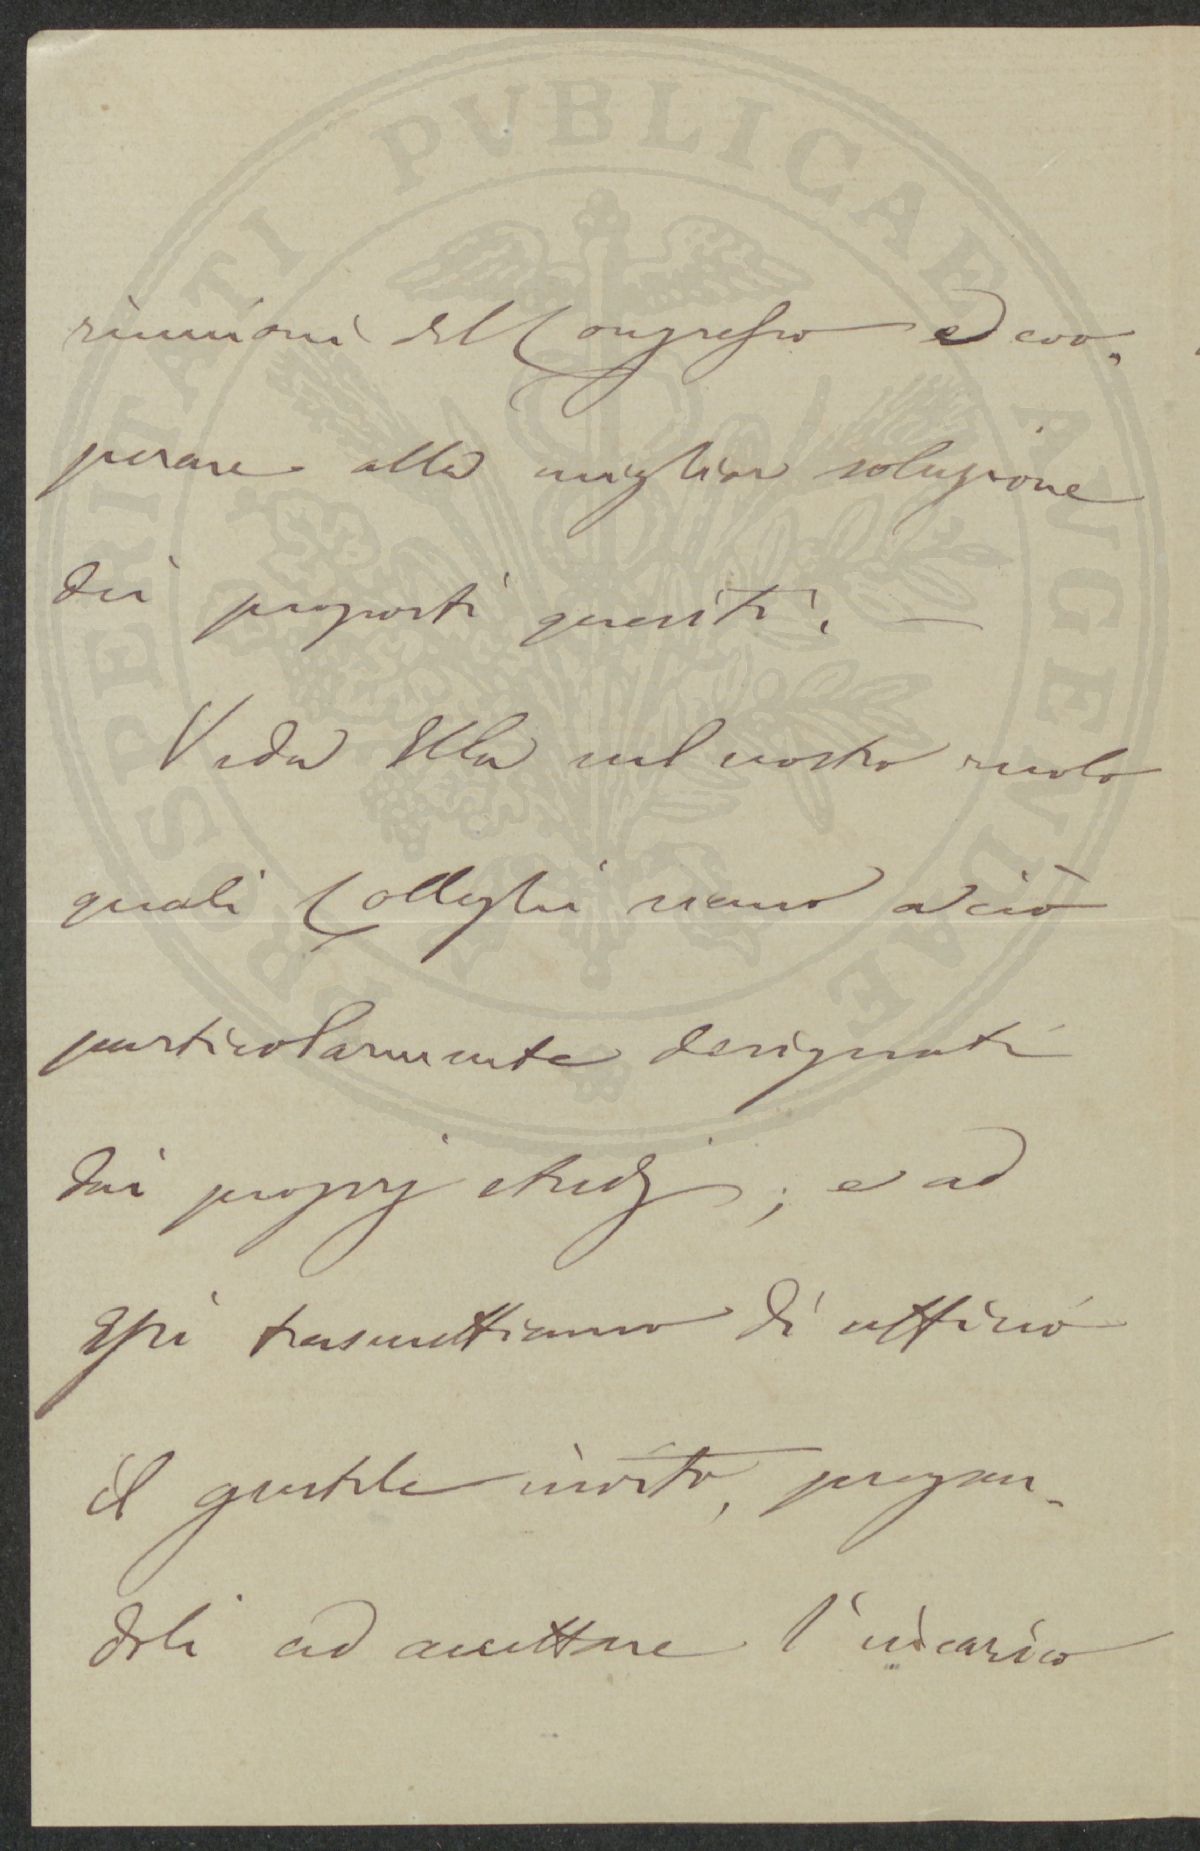 riunioni del Congresso e coo„
perare alla miglior soluzione
dei proposti quesiti. —
Veda Ella nel nostro ruolo
quali Colleghi siano a ciò
particolarmente designati
dai proprj studj; e ad
essi trasmettiamo di ufficio
il gentile invito, pregan-
doli ad accettare l'incarico
PROSPERITATI PVBLICAE AVGENDAE